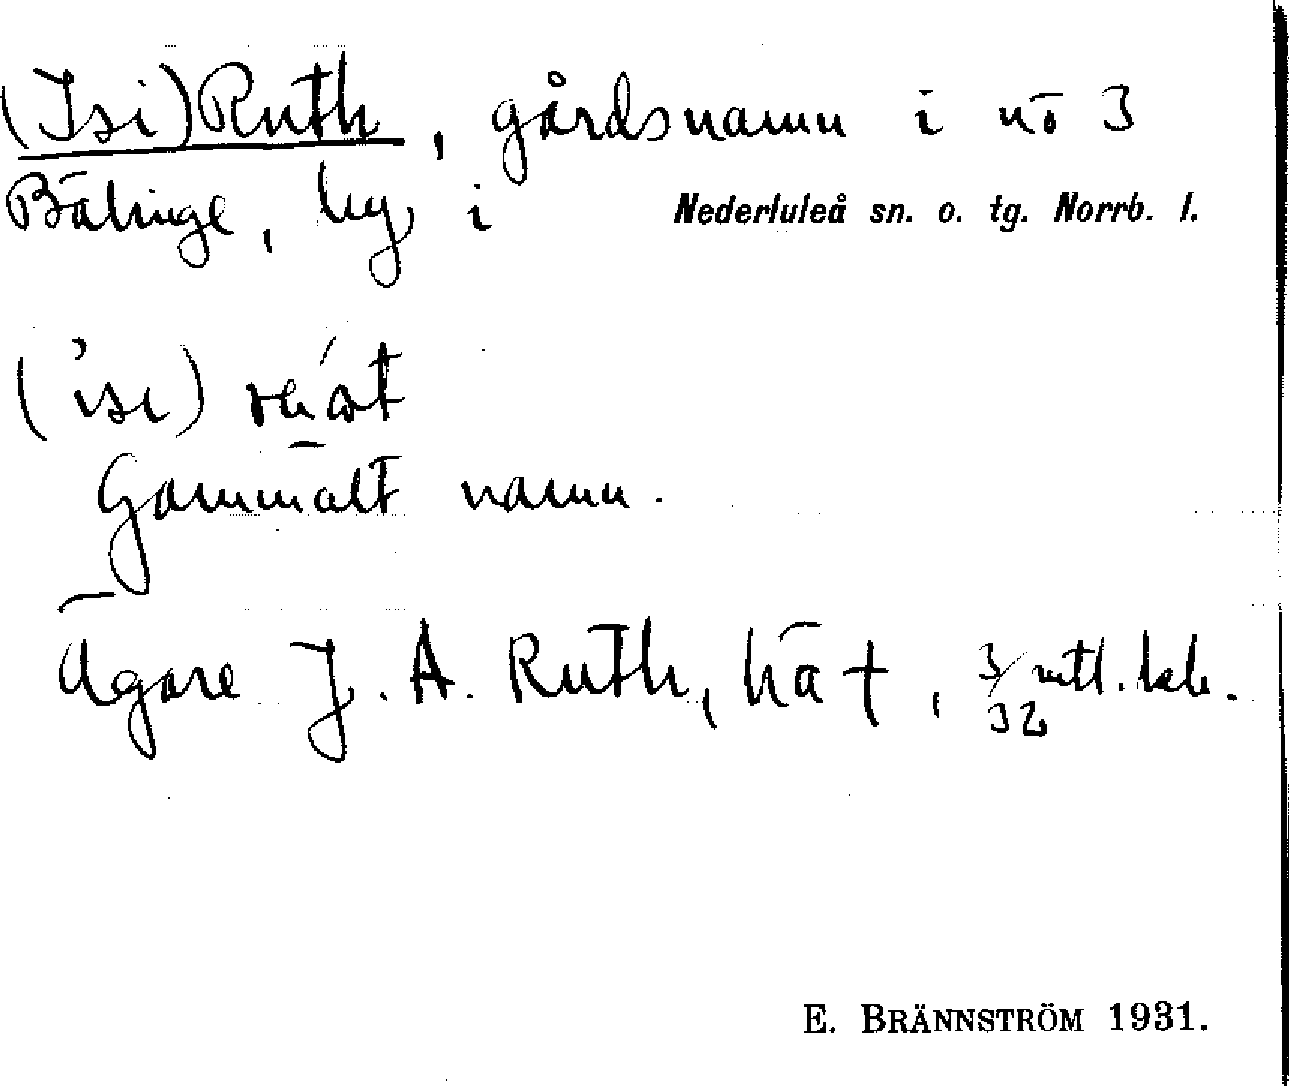 (Isi)Ruth, gårdsnamn i nö 3
Bälinge, by i Nederluleå sn. o. tg. Norrb. l.
('isi)
Gammalt namn.
Ägare J. A. Ruth, hä †, 3/32 mtl.
E. BRÄNNSTRÖM 1931.